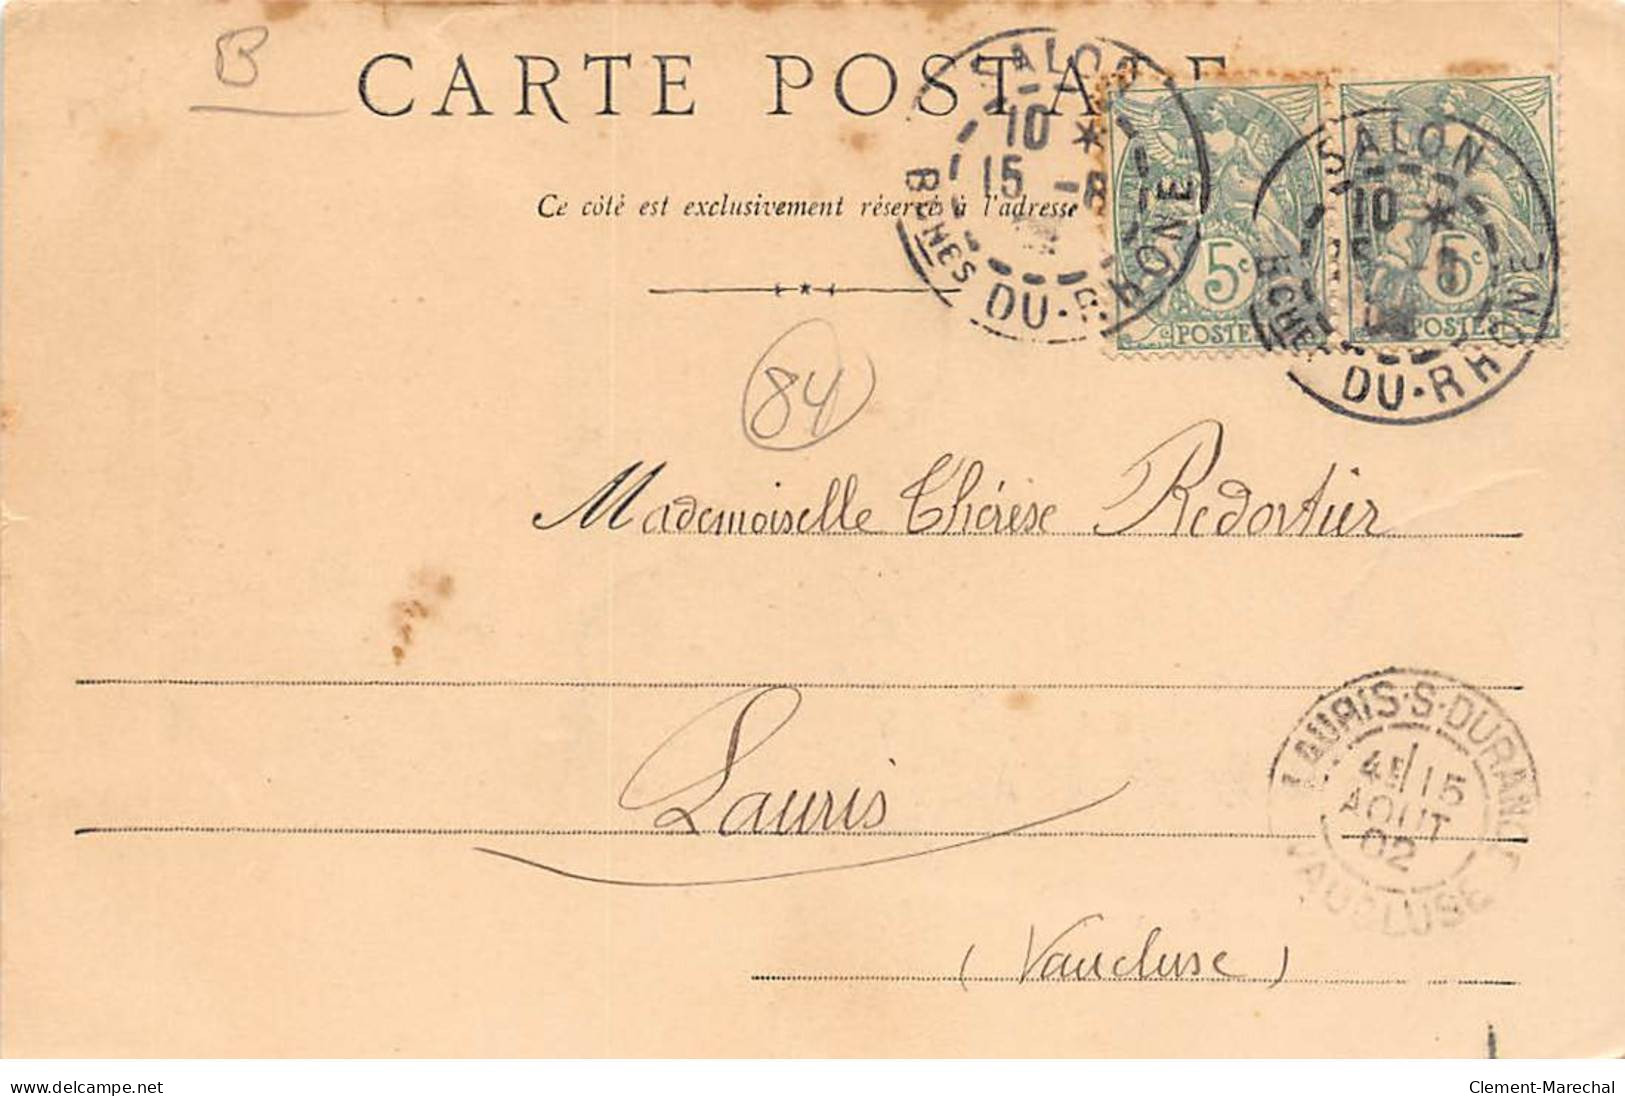 B
CARTE POSTA E
Ce côté est exclusivement réservé à l'adresse
SALON
10 *
15 -8
BCHES DU-RHONE
5c
POSTES
SALON
10 *
BCHES DU-RHONE
5c
POSTES
84
Mademoiselle Thérèse Redortier
Lauris
(Vaucluse)
LAURIS-S-DURANCE
4E/15
AOUT
02
VAUCLUSE
www.delcampe.net
Clement-Marechal